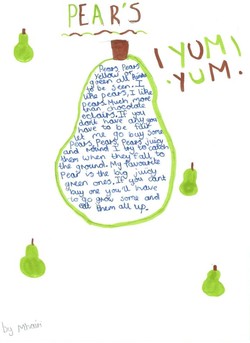 PEAR'S
YUM!
YUM!
Pears, Pears
Yellow or
green all
to be seen. I
like pears, I like
pears. Much more
than chocolate
eclairs. If you
don't have any you
have to be fair
let me go buy some
Pears, Pears, Pears juicy
and round I try to catch
them when they fall to
the ground. My favourite
Pear is the big juicy
green ones. If you don't
buy one you'll have
to go grow some and
eat them all up.
by Mhairi